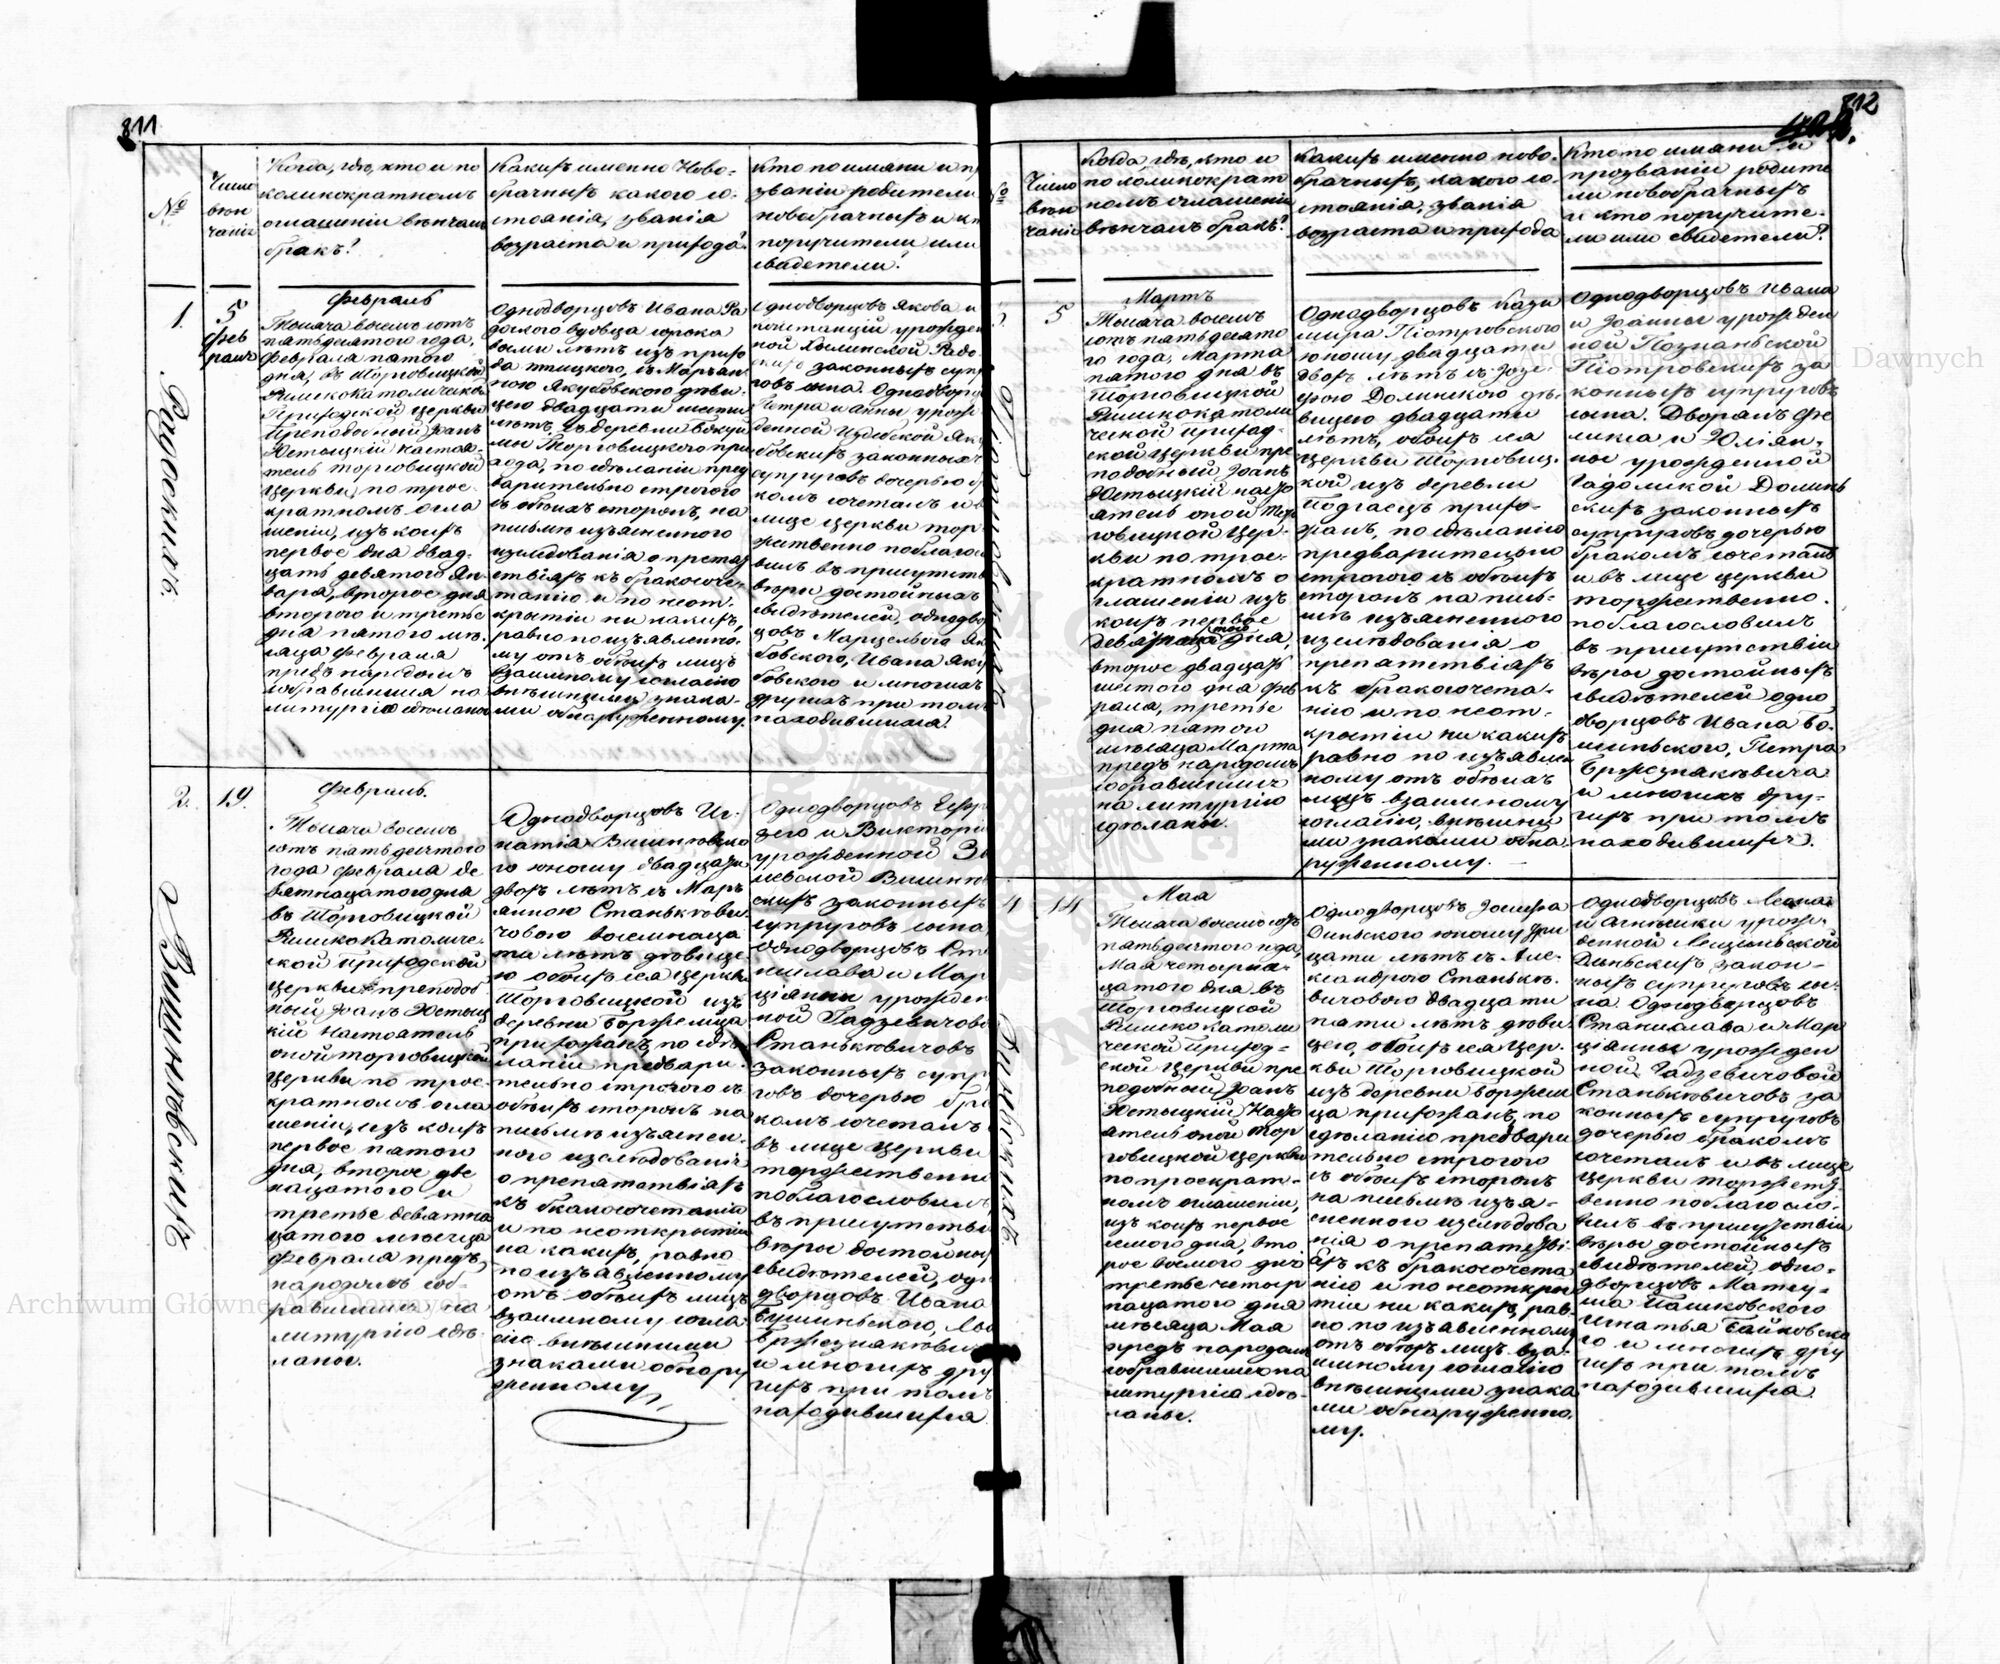 811
№
Число
вѣн
чанія
Когда, гдѣ, кто и по
коликократномъ
оглашеніи вѣнчалъ
бракъ?
Какихъ именно Ново-
брачныхъ какого со-
стоянія, званія
возраста и прихода?
Кто по имяни и пр
званіи родители
новобрачныхъ и кт
поручители или
свидетели?
1.
5
фев
раля
Февраль
Тысяча восемь сотъ
пятьдесятого года,
Февраля пятого
дня, въ Торговицкой
Римскокатолической
Приходской церкви
Преподобный Іоанъ
Хетыцкій настоя-
тель торговицкой
церкви, по трое-
кратномъ огла
шеніи, изъ коихъ
первое дня двад-
цать девятого Ян-
варя, второе дня
второго и третье
дня пятого мѣ-
сяца февраля
предъ народомъ
собравшимся на
литургію сдѣланы
Однодворцовъ Ивана Ра
доского вдовца сорока
восми лѣтъ изъ прихо
да птицкого, съ Марьян
ною Якубовского дѣви-
цею двадцати шести
лѣтъ, съ деревни Бокуй
мы Торговицкого при
хода, по сдѣланіи пред
варительно строгого
съ обѣихъ сторонъ, на
письмѣ изъясненого
изслѣдованія о препят
ствіяхъ къ бракосоче-
танію и по неот-
крытіи ни какихъ,
равно по изъявленно-
му отъ обѣихъ лицъ
взаимному согласію
внѣшними знака-
ми обнаруженному.
Однодворцовъ Якова и
констанціи урожден
ной Хылинской Радо-
скихъ законныхъ супр
говъ сына. Однодворц
Петра и Анны урож
денной Издебской Яку
бовскихъ законныхъ
супруговъ дочерью б
комъ сочеталъ и в
лице церкви тор
жественно поблагос
вилъ въ присутств
вѣры достойныхъ
свидѣтелей, однодво
цовъ Марцельего Як
бовского, Ивана Яку
бовского и многихъ
другихъ при томъ
находившихся.
Радоскихъ.
2.
19.
Февраль.
Тысяча восемь
сотъ пятьдесятого
года февраля де
вятнацатого дня
въ Торговицкой
Римскокатоличе-
ской Приходской
церкви преподоб
ный Іоанъ Хетыц
кій Настоятель
оной торговицкой
церкви по трое-
кратномъ огла
шеніи, изъ коихъ
первое пятого
дня, второе две
нацатого и
третье девятна
цатого мѣсяца
февраля предъ
народомъ соб-
равшимся на
литургію сдѣ-
ланы.
Однодворцовъ Иг-
натія Вишнѣвско
го юношу двадцати
двохъ лѣтъ съ Марь
янною Станькѣви-
човою восемнаца
та лѣтъ дѣвице-
ю обоихъ сея церкви
Торговицкой изъ
деревни Боржемца
прихожанъ, по сдѣ
ланіи предвари-
тельно строгого съ
обѣихъ сторонъ на
письмѣ изъяснен-
ного изслѣдованія
о препятствіяхъ
къ бракосочетанію
и по неоткрытіи
ни какихъ, равно
по изъявленному
отъ обѣихъ лицъ
взаимному согла
сію внѣшними
знаками обнару
женному.
законныхъ
супруговъ сына,
однодворцовъ Ста
нислава и Мар
ціянны урожден
ной Гадзевичово
Станькѣвичовъ
законныхъ супр
говъ дочерью бра
комъ сочеталъ
въ лице церкви
торжественно
поблагословилъ
въ присутствіи
вѣры достойных
свидѣтелей, одн
дворцовъ Ивана
и многихъ дру
гихъ при томъ
находившихся
Вишнѣвскихъ
812
Число
вѣн
чанія
Когда, гдѣ, кто и
по коликократ
номъ оглашеніи
вѣнчалъ бракъ?
Какихъ именно ново-
брачныхъ, какого со-
стоянія, званія
возраста и прихода
Кто по имяни и
прозваніи родите
ли новобрачныхъ
и кто поручите-
ли или свидетели?
5
Мартъ
Тысяча восемь
сотъ пятьдесято
го года, Марта
пятого дня въ
Торговицкой
Римскокатоли
ческой приход-
ской церкви пре
подобный Іоанъ
Хетыцкій насто
ятель оной Тор
говицкой цер-
кви по трое-
кратномъ о
глашеніи изъ
коихъ первое
дня,
второе двадцать
шестого дня фев
раля, третье
дня пятого
мѣсяца Марта
предъ народомъ
собравшимся
на литургію
сдѣланы.
Однодворцовъ Кази
мира Піотровского
юношу двадцати
двохъ лѣтъ съ Юзе-
фою Долинского дѣ-
вицею двадцати
лѣтъ, обоихъ сея
церкви Торговиц-
кой изъ деревни
Подгаецъ прихо-
жанъ, по сдѣланію
предварительно
строгого съ обѣихъ
сторонъ на пись-
мѣ изъясненного
изслѣдованія о
препятствіяхъ
къ бракосочета-
нію и по неот-
крытіи ни какихъ
равно по изъявлен
ному отъ обѣихъ
лицъ взаимному
согласію, внѣшни
ми знаками обна
руженному.
Однодворцовъ Ивана
и Іоанны урожден
ной Познаньской
Піотровскихъ за
конныхъ супруговъ
сына. Дворянъ Фе
ликса и Юліян-
ны урожденной
Гадомской Долинь
скихъ законныхъ
супруговъ дочерью
бракомъ сочеталъ
и въ лице церкви
торжественно.
поблагословилъ
въ присутствіи
вѣры достойныхъ
свидѣтелей одно
дворцовъ Ивана Бо-
Петра
и многихъ дру-
гихъ при томъ
находившихся.
Піотровскихъ
4
14
Мая
Тысяча восемь сотъ
пятьдесятого года,
Мая четырна-
цатого дня въ
Торговицкой
Римско католи
ческой приход-
ской церкви пре
подобный Іоанъ
Хетыцкій Насто
ятель оной Тор
говицкой церкви
по троекрат-
номъ оглашеніи,
изъ коихъ первое
семого дня, вто
рое восмого дня
третье четыр
нацатого дня
мѣсяца Мая
предъ народомъ
собравшимся на
литургію сдѣ-
ланы.
Однодворцовъ Іосифа
Дыньского юношу три
цати лѣтъ съ Але-
ксандрою Станькѣ-
вичовою двадцати
пяти лѣтъ дѣви
цею, обоихъ сея цер-
кви Торговицкой
изъ деревни Боржем
ца прихожанъ, по
сдѣланію предвари
тельно строгого
съ обоихъ сторонъ
на письмѣ изъя-
сненного изслѣдова
нія о препятстві-
яхъ къ бракосочета
нію и по неоткры
тіи ни какихъ, рав-
но по изъявленному
отъ обоихъ лицъ вза-
имному согласію
внѣшними знака
ми обнаруженно-
му.
Однодворцовъ Леона
и Агнѣшки урож-
денной Лещиньской
Дыньскихъ закон-
ныхъ супруговъ сы-
на. Однодворцовъ
Станислава и Мар
ціянны урожден
ной Гадзевичовой
Станькѣвичовъ за
конныхъ супруговъ
дочерью бракомъ
сочеталъ и въ лице
церкви торжест-
венно поблагосло-
вилъ въ присутствіи
вѣры достойныхъ
свидѣтелей, одно-
дворцовъ Матеу-
ша Пашковского
Игнатья Байковско
го и многихъ дру
гихъ при томъ
находившихся.
Дыньскихъ
Archiwum Główne Akt Dawnych
Archiwum Główne Akt Dawnych